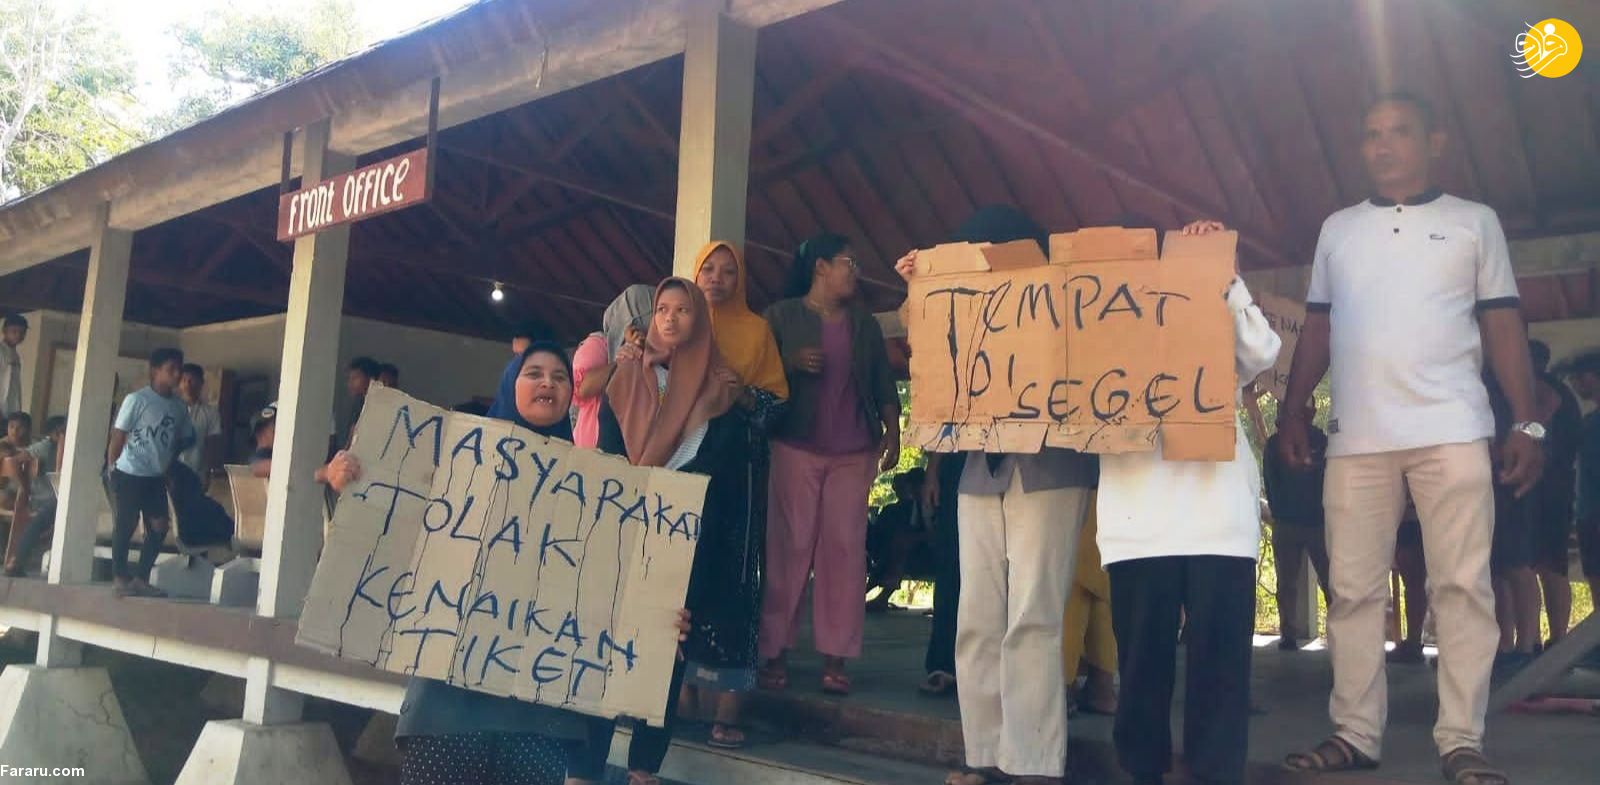 Front OFFICE
MASYARAKAT
TOLAK
KENAIKAN
TIKET
TEMPAT
DI
SEGEL
Fararu.com